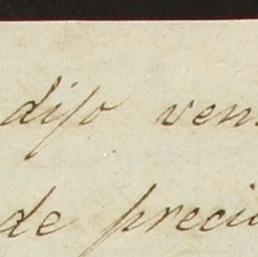 dijo ven
de preci